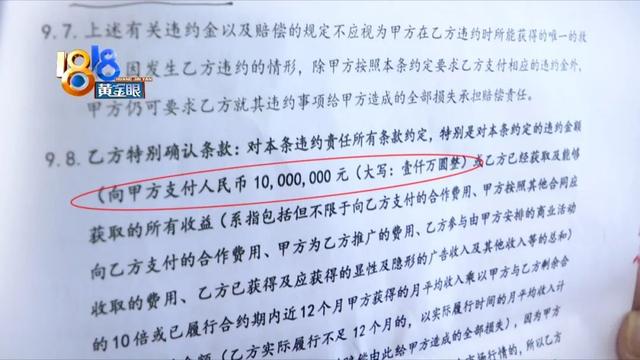 9.7. 上述有关违约金以及赔偿的规定不应视为甲方在乙方违约时所能获得的唯一的救
因发生乙方违约的情形，除甲方按照本条约定要求乙方支付相应的违约金外，
甲方仍可要求乙方就其违约事项给甲方造成的全部损失承担赔偿责任。
1818
HUANG JIN YAN
黄金眼
9.8. 乙方特别确认条款：对本条违约责任所有条款约定，特别是对本条约定的违约金额
（向甲方支付人民币 10,000,000 元（大写：壹仟万圆整）或乙方已经获取及能够
获取的所有收益（系指包括但不限于向乙方支付的合作费用、甲方按照其他合同应
向乙方支付的合作费用、甲方为乙方推广的费用、乙方参与由甲方安排的商业活动
收取的费用、乙方已获得及应获得的显性及隐形的广告收入及其他收入等的总和）
的 10 倍或已履行合约期内近 12 个月甲方获得的月平均收入乘以甲方与乙方剩余合
金额（乙方实际履行不足 12 个月的，以实际履行时间的月平均收入计
由此给甲方造成的全部损失），因为甲方
市场行情的，所以乙方